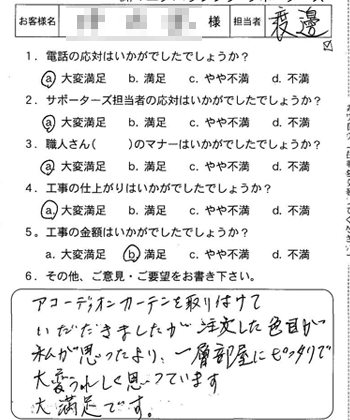 お客様名 様 担当者 渡邊
1．電話の応対はいかがでしたでしょうか？
a. 大変満足 b. 満足 c. やや不満 d. 不満
2．サポーターズ担当者の応対はいかがでしたでしょうか？
a. 大変満足 b. 満足 c. やや不満 d. 不満
3．職人さん( )のマナーはいかがでしたでしょうか？
a. 大変満足 b. 満足 c. やや不満 d. 不満
4．工事の仕上がりはいかがでしたでしょうか？
a. 大変満足 b. 満足 c. やや不満 d. 不満
5．工事の金額はいかがでしたでしょうか？
a. 大変満足 b. 満足 c. やや不満 d. 不満
6．その他、ご意見・ご要望をお書き下さい。
アコーディオンカーテンを取り付けて
いただきましたが 注文した色目が
私が思ったより、一層部屋にピッタリで
大変うれしく思っています
大満足です。